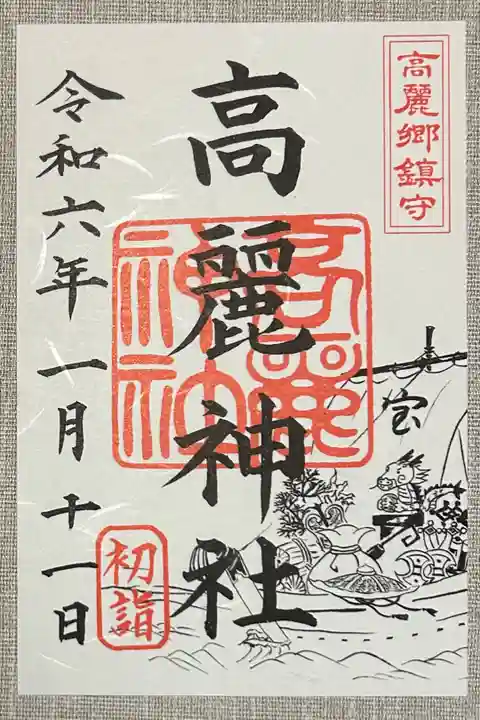 高麗郷鎮守
高麗神社
高麗神社
宝
令和六年一月十一日
初詣